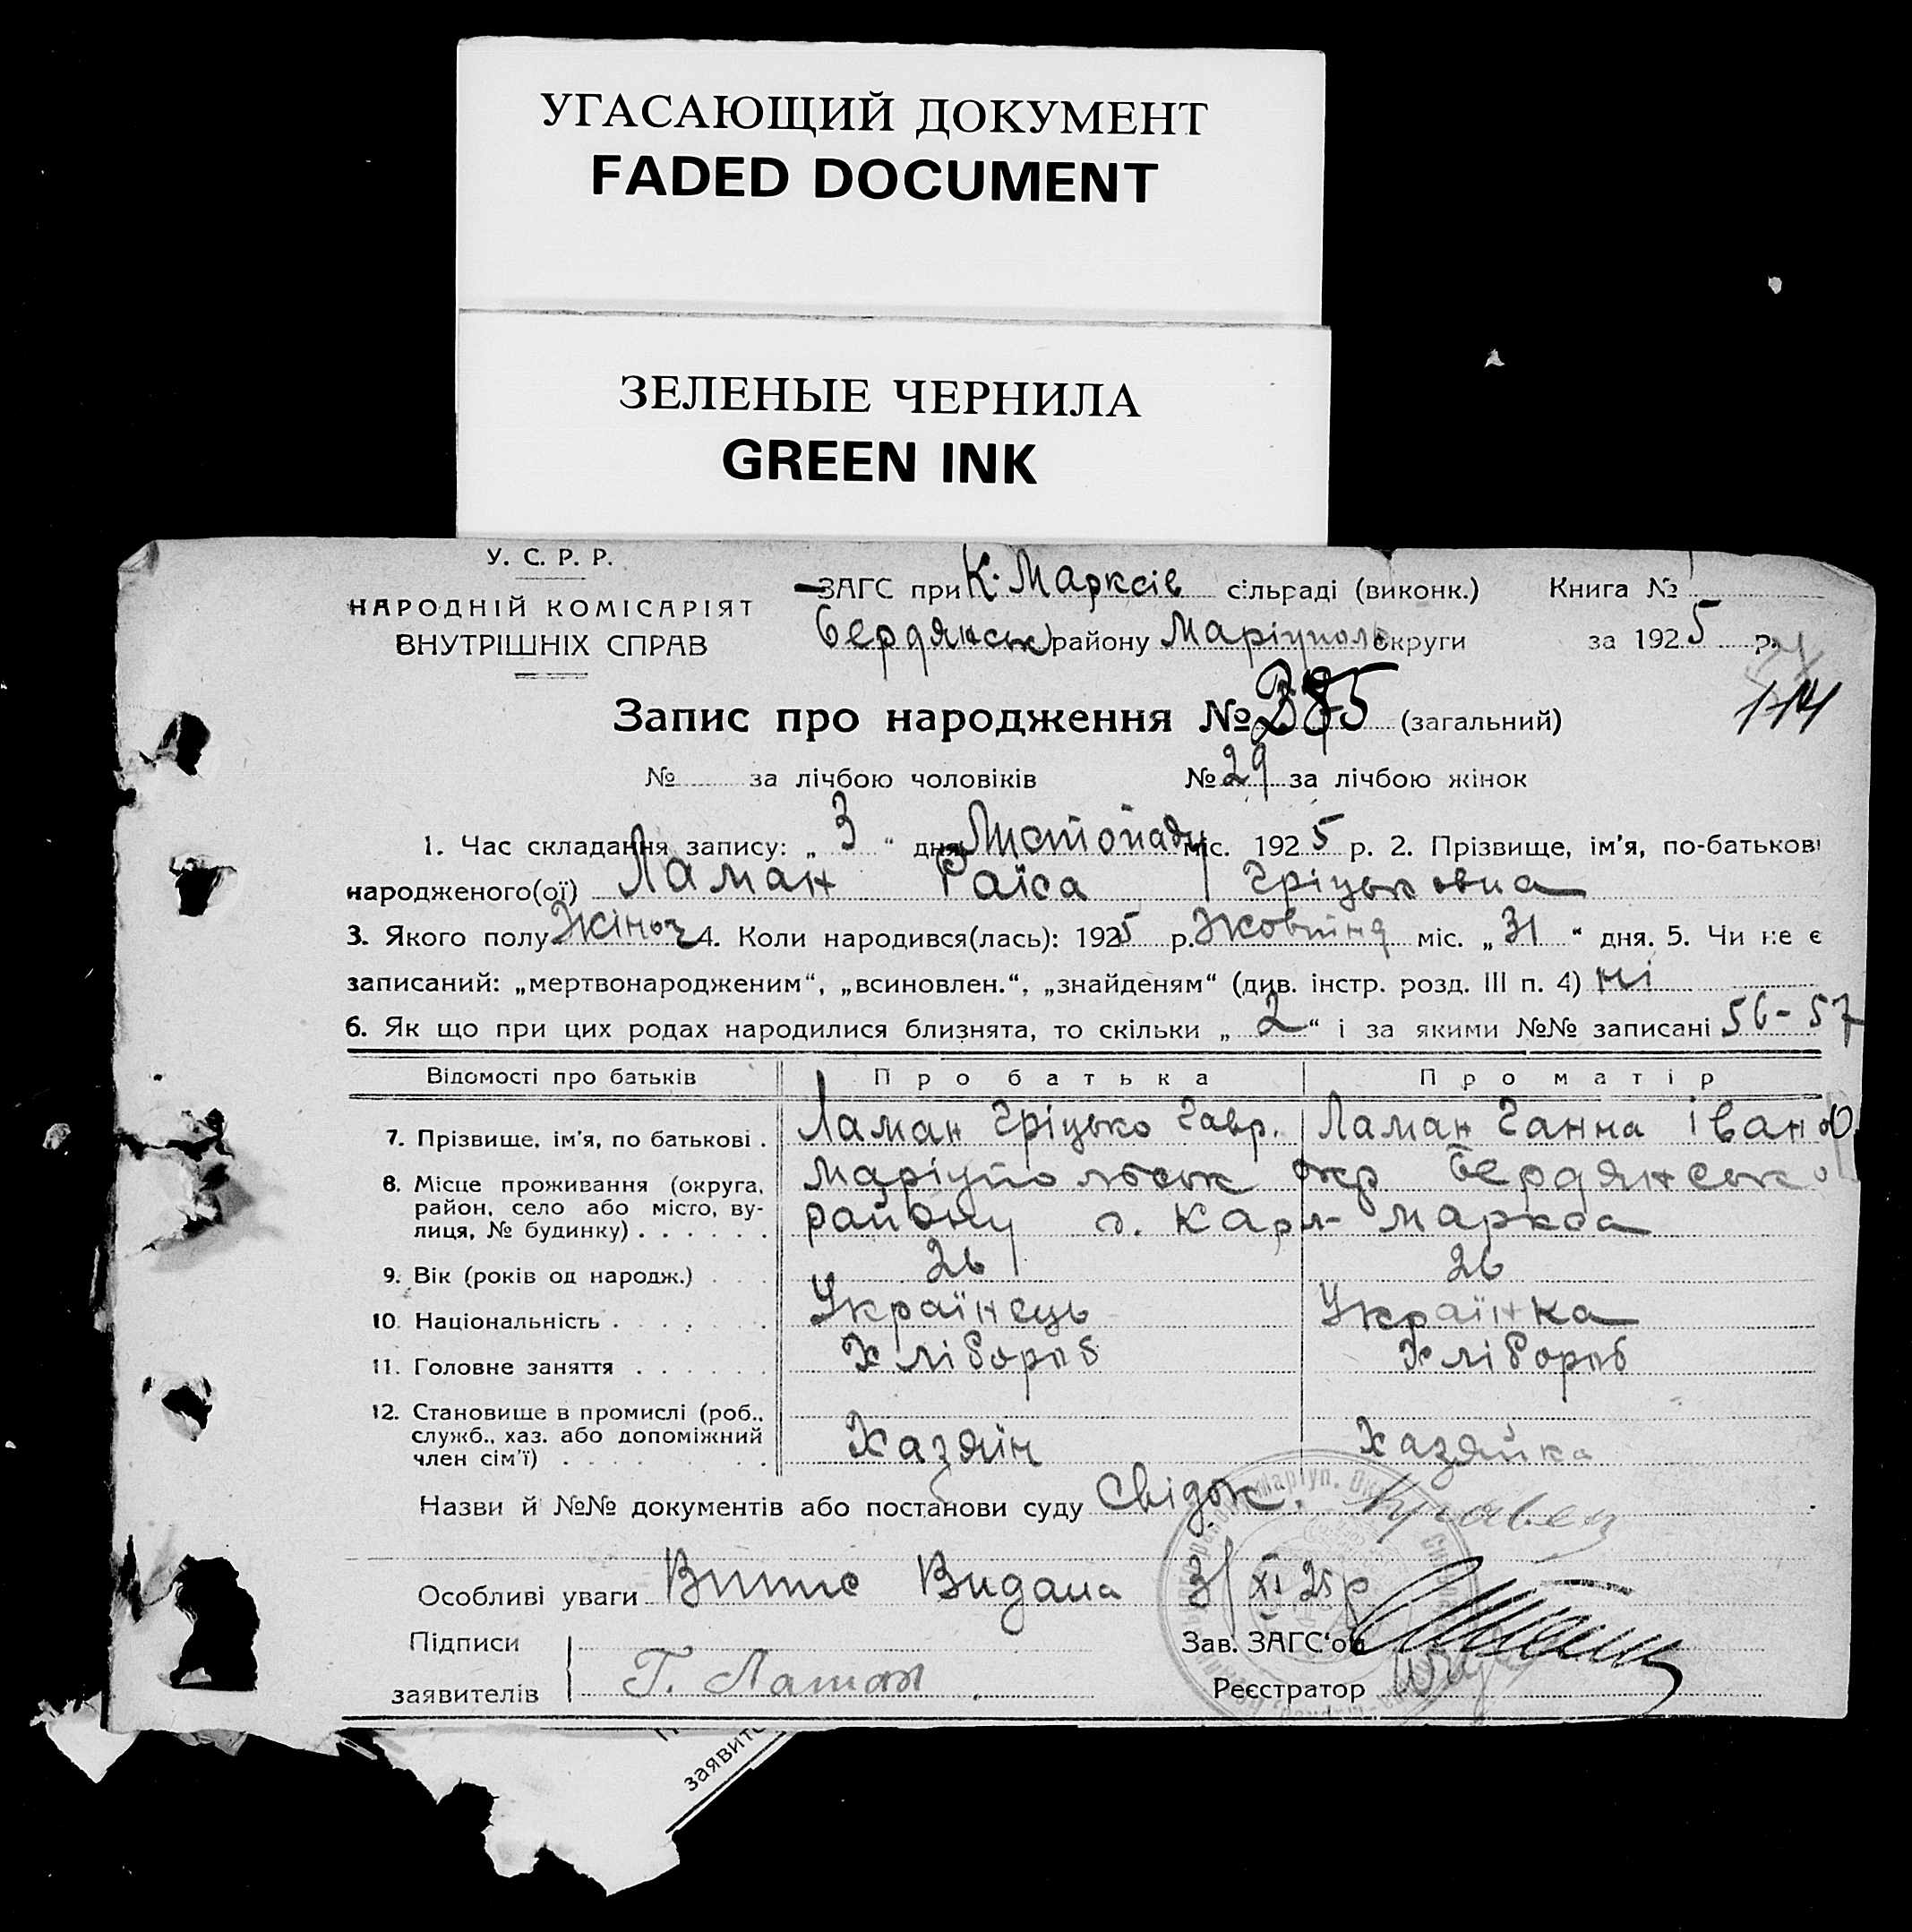 УГАСАЮЩИЙ ДОКУМЕНТ
FADED DOCUMENT
ЗЕЛЕНЫЕ ЧЕРНИЛА
GREEN INK
У. С. Р. Р.
НАРОДНІЙ КОМІСАРІЯТ
ВНУТРІШНІХ СПРАВ
ЗАГС при К. Марксів сільраді (виконк.) Книга №
Бердянськ району Маріуполь округи за 1925 р.
114
Запис про народження № (загальний)
№ за лічбою чоловіків № 29 за лічбою жінок
1. Час складання запису: „ 3 “ дня Листопаду міс. 1925 р. 2. Прізвище, ім’я, по-батькові
народженого(ої) Ламан Раїса Гріцьковна
3. Якого полу Жіноч 4. Коли народився(лась): 1925 р. Жовтня міс. „ 31 “ дня. 5. Чи не є
записаний: „мертвонародженим“, „всиновлен.“, „знайденям“ (див. інстр. розд. III п. 4) ні
6. Як що при цих родах народилися близнята, то скільки „ 2 “ і за якими №№ записані 56-57
Відомості про батьків Про батька Про матір
7. Прізвище, ім’я, по батькові . Ламан Гріцько Гавр. Ламан Ганна Іванов.
8. Місце проживання (округа, Маріупольськ окр Бердянсько
район, село або місто, ву-
лиця, № будинку) . . . . . . району с. Карл-Маркса
9. Вік (років од народж.) . . . 26 26
10. Національність . . . . . . Українець Українка
11. Головне заняття . . . . . . Хлібороб Хлібороб
12. Становище в промислі (роб.,
служб., хаз. або допоміжний
член сім’ї) . . . . . . . . Хазяїн Хазяйка
Назви й №№ документів або постанови суду Свідок.
Особливі уваги Випис Видана 3/XI 25р
Підписи Зав. ЗАГС‘ом
заявителів Г. Ламан Реєстратор
заявите